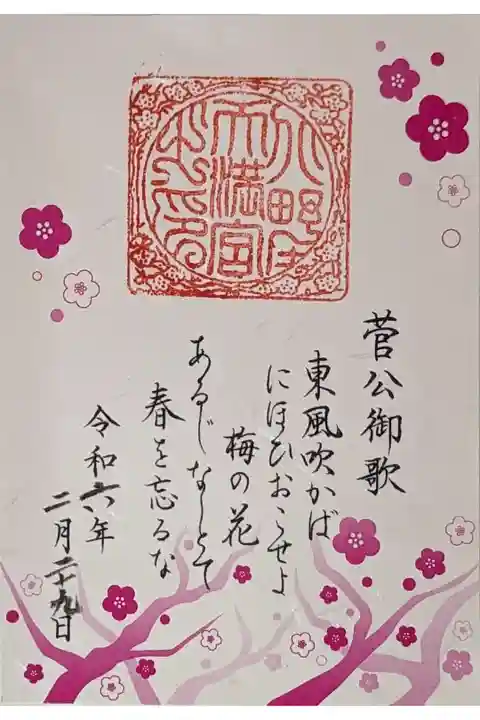 天満宮
之印
菅公御歌
東風吹かば
にほひおこせよ
梅の花
あるじなしとて
春を忘るな
令和六年
二月二十九日